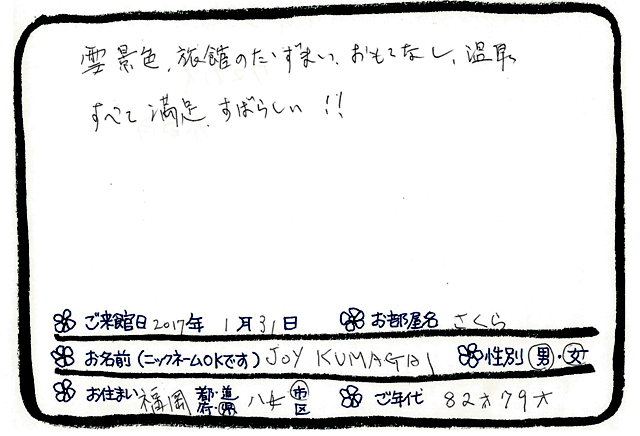 雪景色、旅館のたたずまい、おもてなし、温泉
すべて満足、すばらしい!!
ご来館日 2017年 1月31日 お部屋名 さくら
お名前(ニックネームOKです) JOY KUMAGAI 性別 男・女
お住まい 福岡 都・道・府・県 八女 市区 ご年代 82才79才